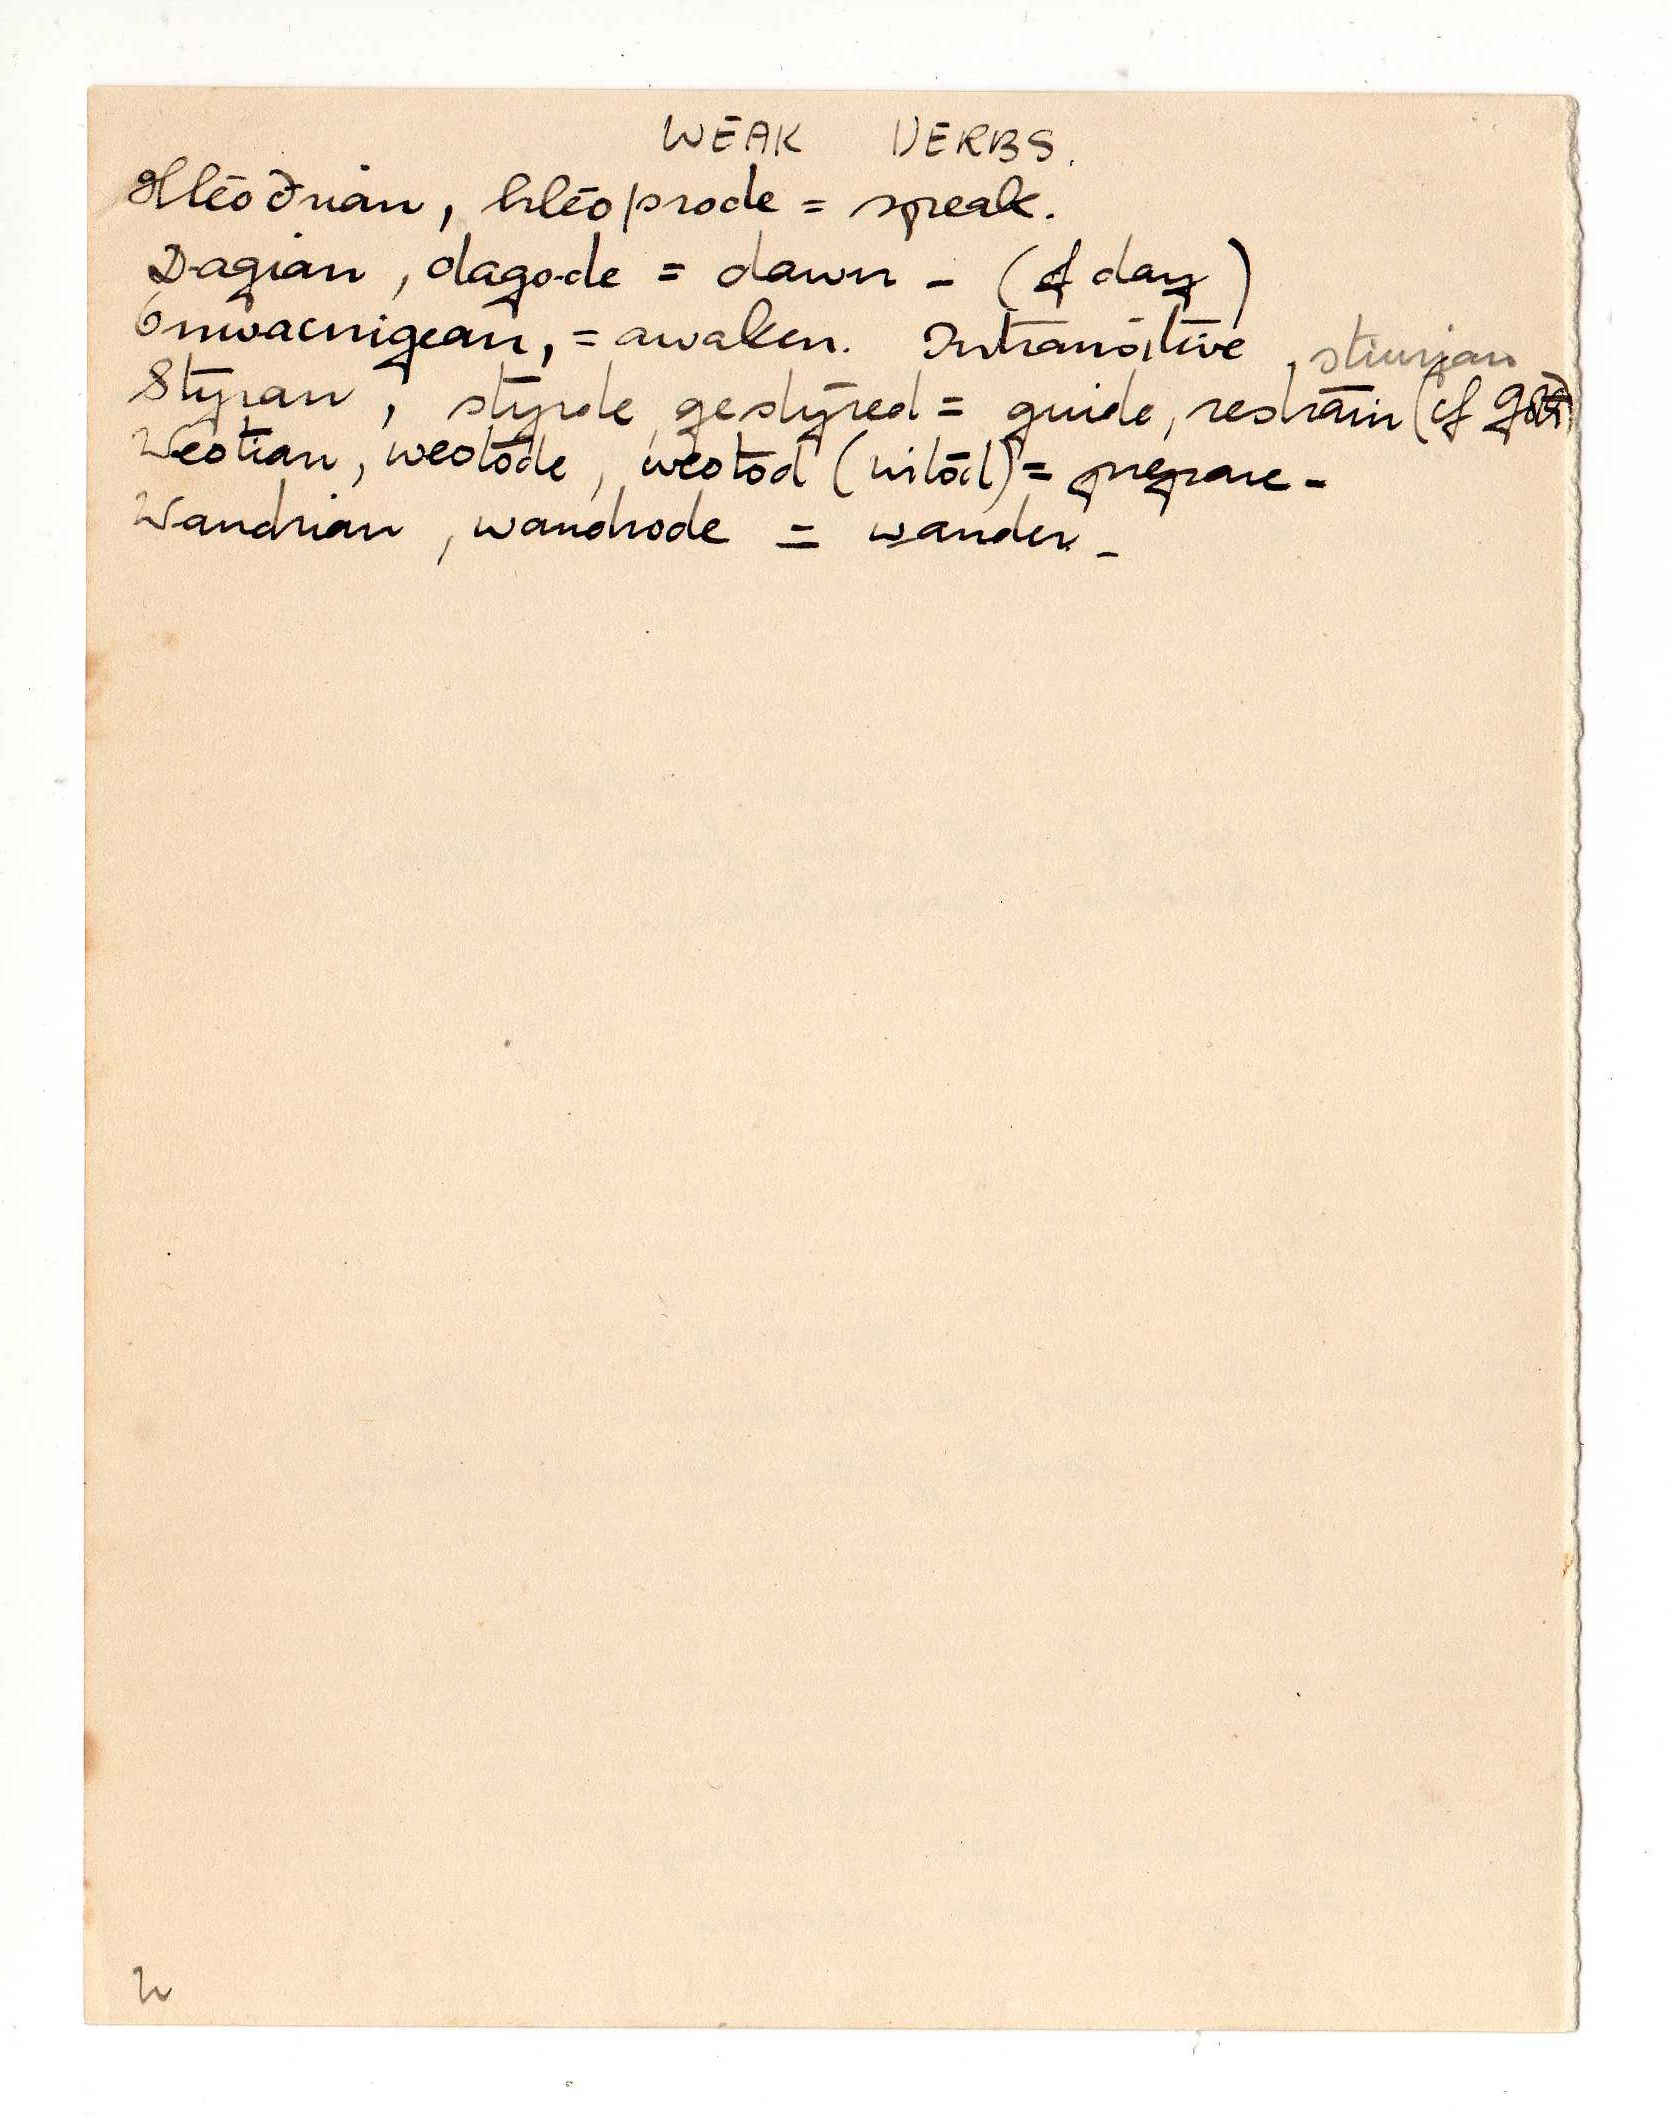 WEAK VERBS.
Hlēoðrian, hlēoþrode = speak.
Dagian, dagode = dawn - (of day)
Onwacnigean, = awaken. Intransitive
stiurjan
Stȳran, stȳrde, gestȳred = guide, restrain (cf Goth)
Weotian, weotode, weotod (witod) = prepare -
Wandrian, wandrode = wander -